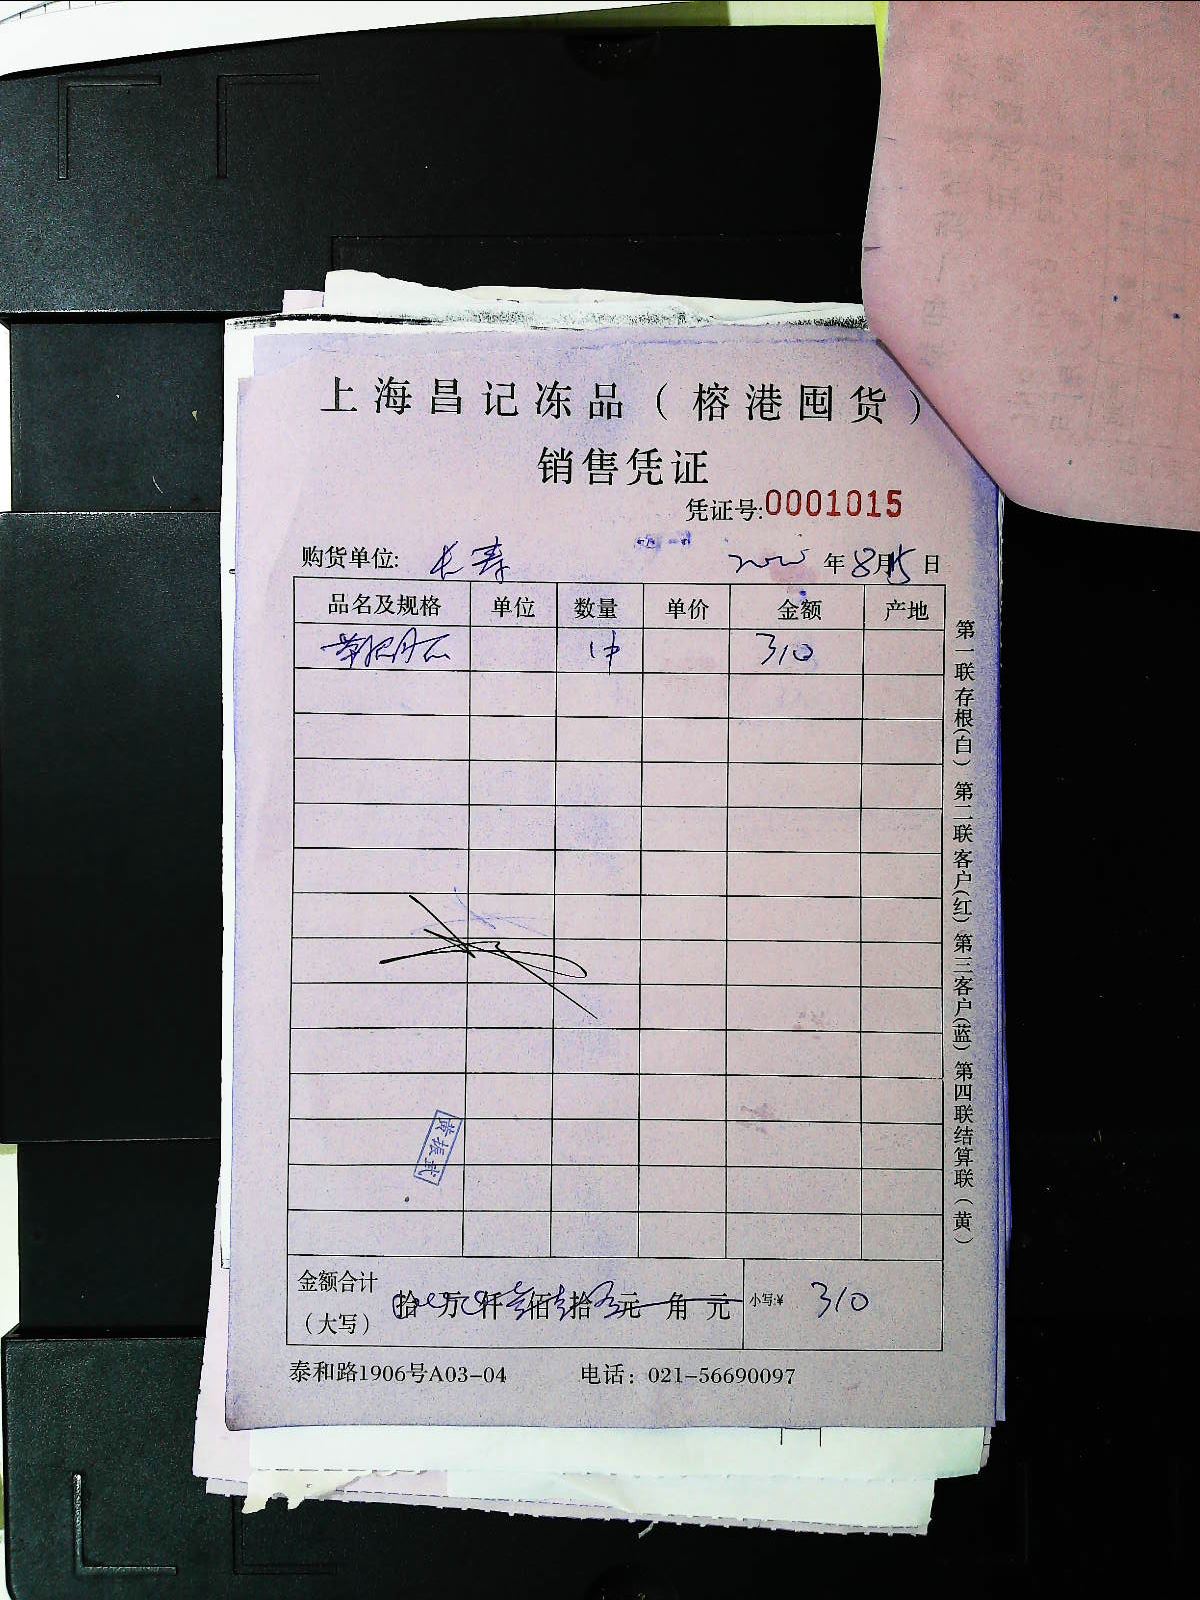 上海昌记冻品（榕港囤货）
销售凭证
凭证号:0001015
购货单位: 长寿 年8月15日
品名及规格 单位 数量 单价 金额 产地
1件 310
黄振武
金额合计（大写） 拾 万 仟叁佰壹拾 元 角 元 小写:¥ 310
泰和路1906号A03-04 电话：021-56690097
第一联存根(白) 第二联客户(红) 第三客户(蓝) 第四联结算联（黄）